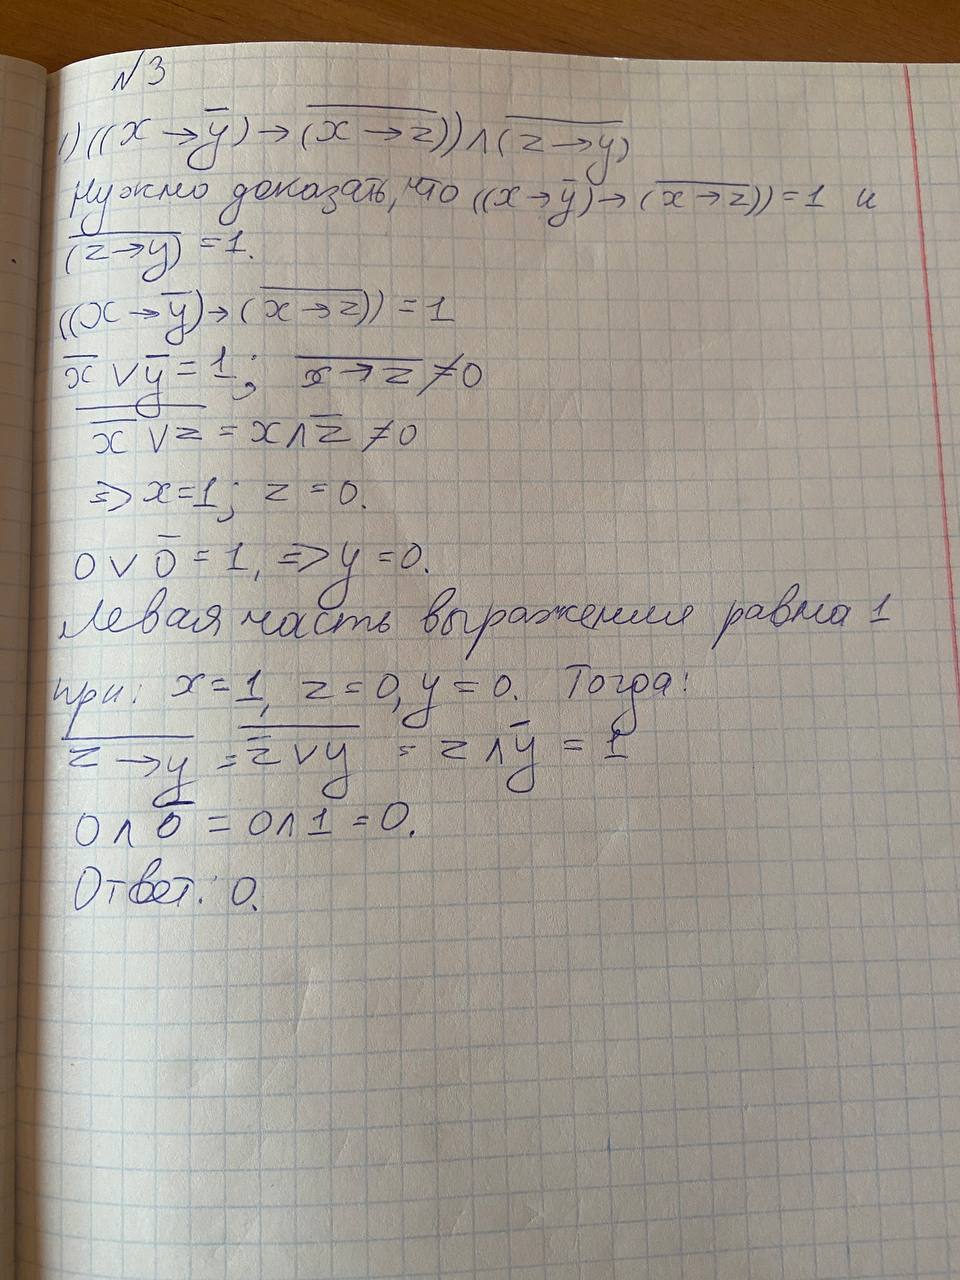 №3
1) ((x → y̅) → (x̅ ̅→̅ ̅z̅)) ∧ (z̅ ̅→̅ ̅y̅)
Нужно доказать, что ((x → y̅) → (x̅ ̅→̅ ̅z̅)) = 1 и
(z̅ ̅→̅ ̅y̅) = 1.
((x → y̅) → (x̅ ̅→̅ ̅z̅)) = 1
x̅ ∨ y̅ = 1; x̅ ̅→̅ ̅z̅ ≠ 0
\overline{x̅ ∨ z} = x ∧ z̅ ≠ 0
=> x = 1; z = 0.
0 ∨ 0̅ = 1, => y = 0.
Левая часть выражения равна 1
при: x = 1, z = 0, y = 0. Тогда:
\overline{z → y} = \overline{z̅ ∨ y} = z ∧ y̅ = 1
0 ∧ 0̅ = 0 ∧ 1 = 0.
Ответ: 0.